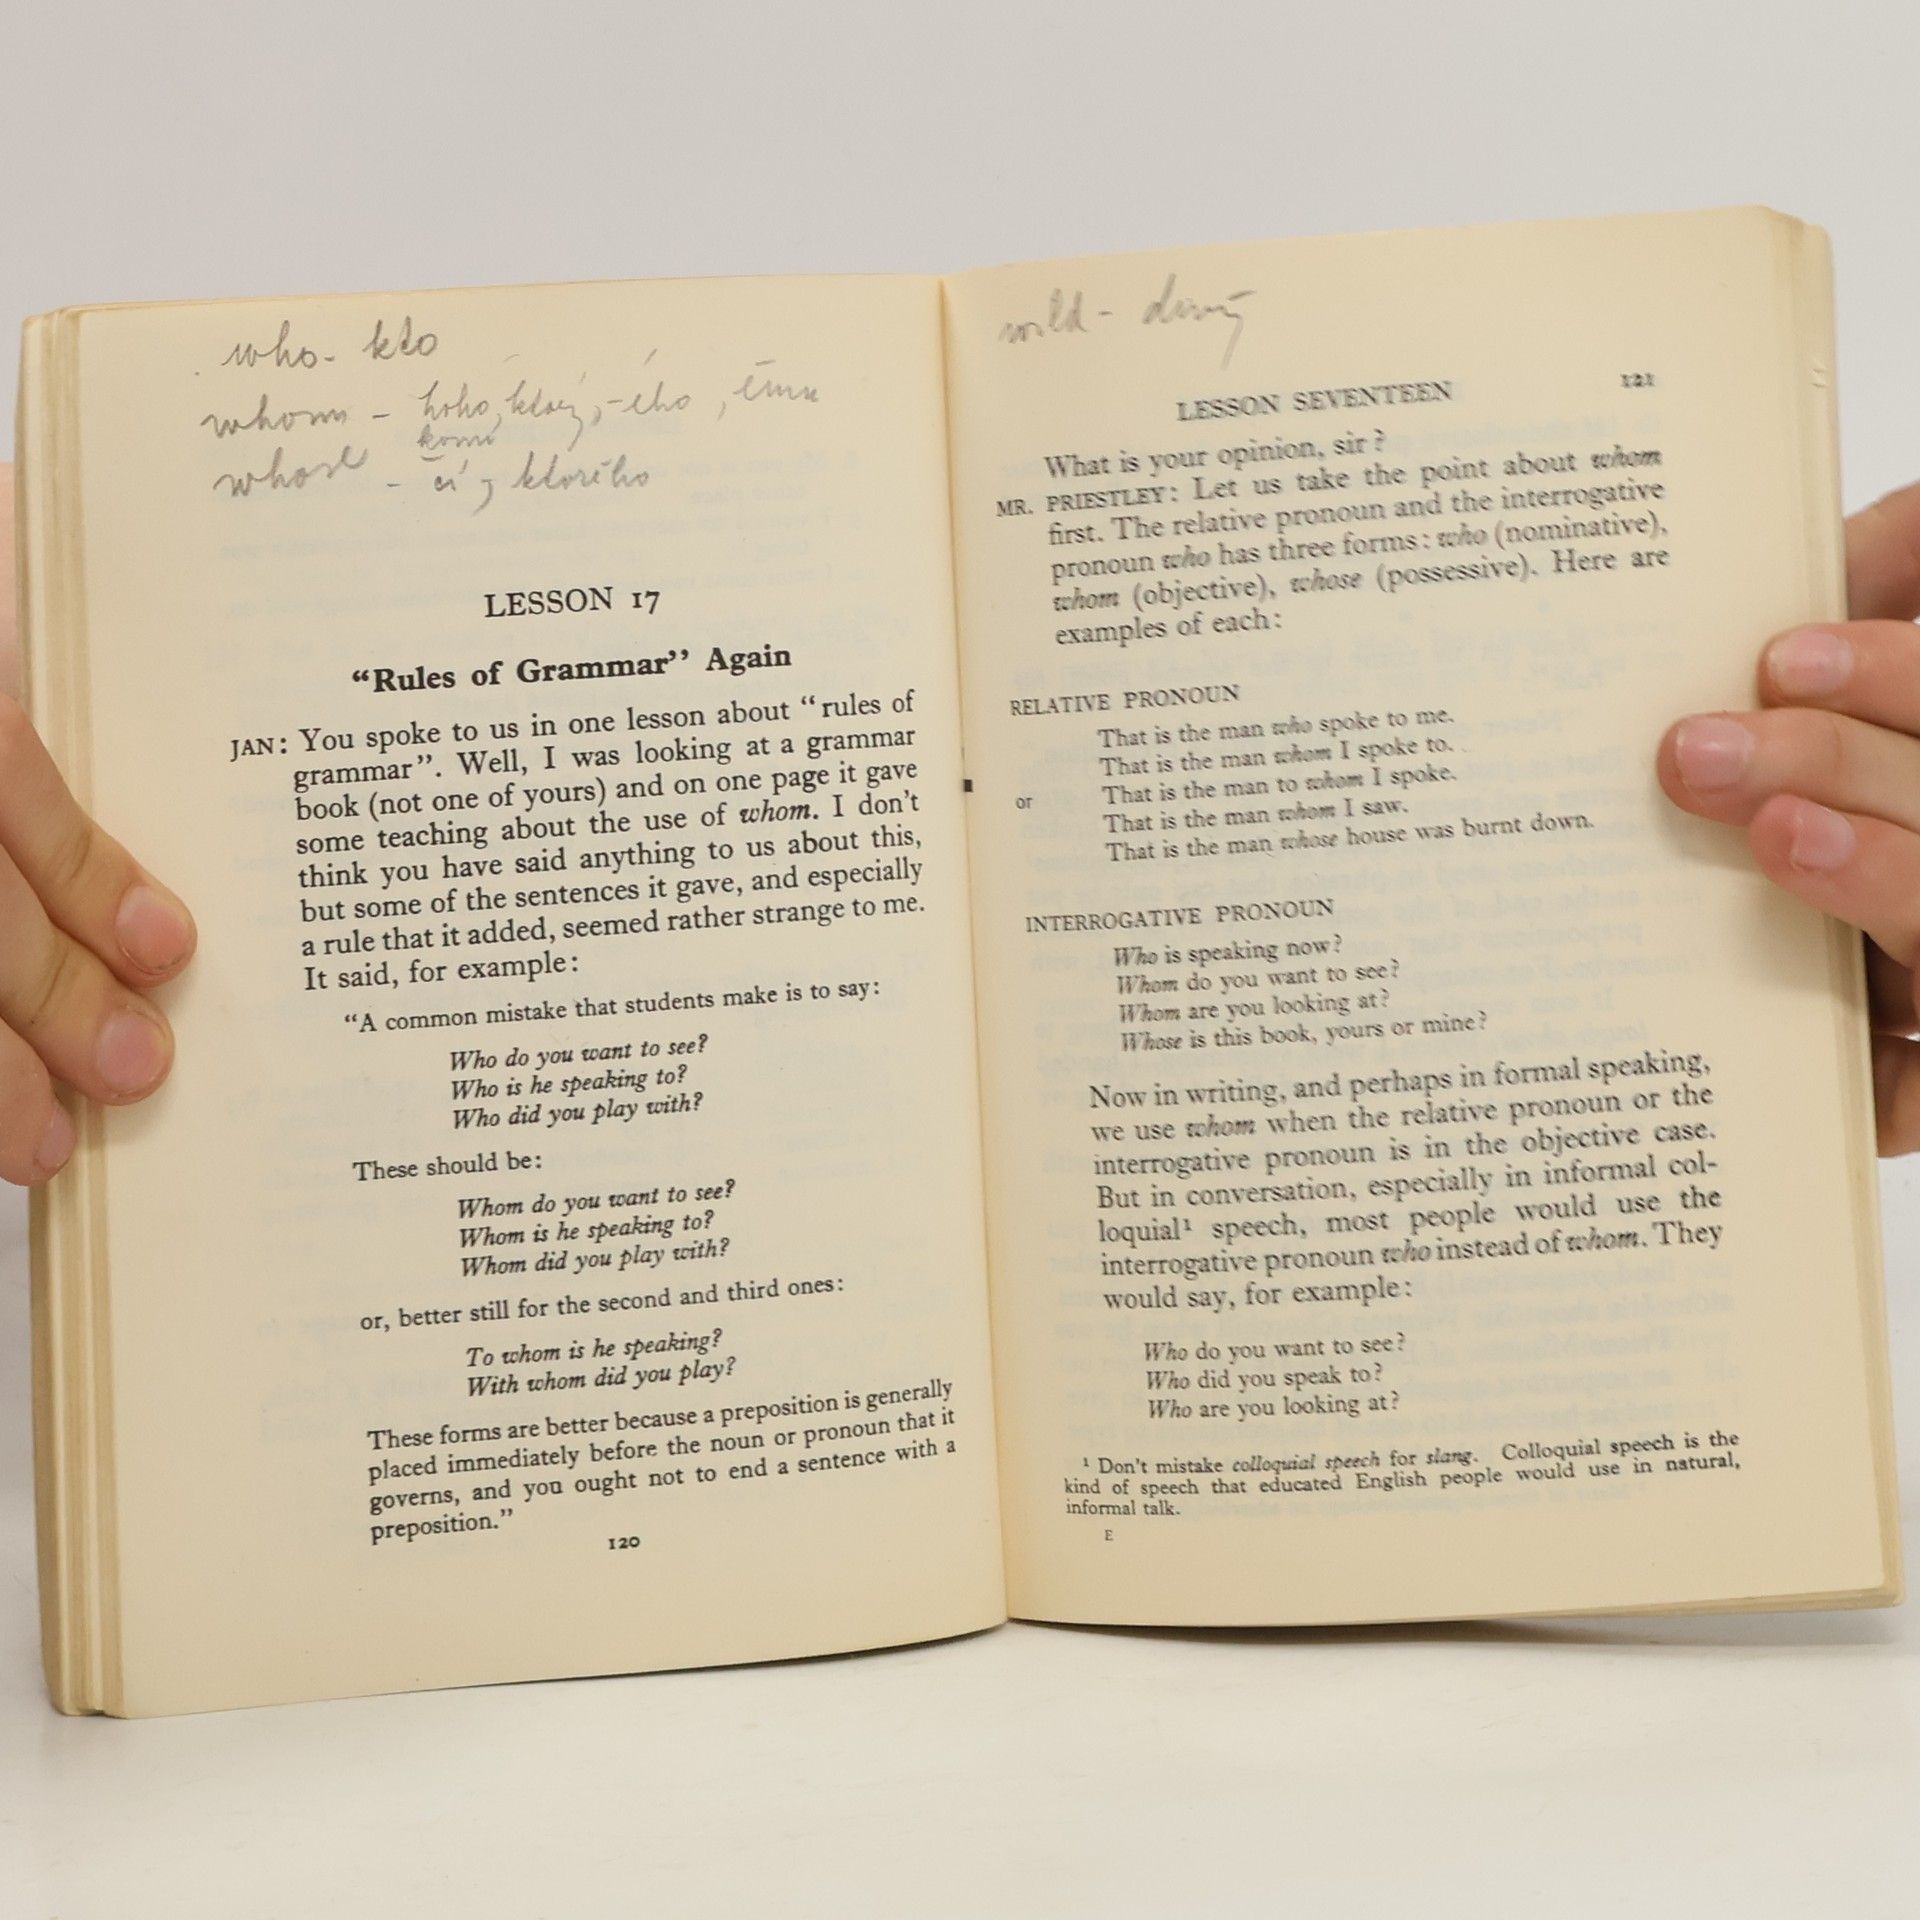 who - kto
whom - koho, ktorý, -ého, ému
komu
whose - čí, ktorého
LESSON 17
“Rules of Grammar” Again
JAN: You spoke to us in one lesson about “rules of
grammar”. Well, I was looking at a grammar
book (not one of yours) and on one page it gave
some teaching about the use of whom. I don't
think you have said anything to us about this,
but some of the sentences it gave, and especially
a rule that it added, seemed rather strange to me.
It said, for example:
“A common mistake that students make is to say:
Who do you want to see?
Who is he speaking to?
Who did you play with?
These should be:
Whom do you want to see?
Whom is he speaking to?
Whom did you play with?
or, better still for the second and third ones:
To whom is he speaking?
With whom did you play?
These forms are better because a preposition is generally
placed immediately before the noun or pronoun that it
governs, and you ought not to end a sentence with a
preposition.”
120
wild - divý
LESSON SEVENTEEN 121
What is your opinion, sir?
MR. PRIESTLEY: Let us take the point about whom
first. The relative pronoun and the interrogative
pronoun who has three forms: who (nominative),
whom (objective), whose (possessive). Here are
examples of each:
RELATIVE PRONOUN
That is the man who spoke to me.
That is the man whom I spoke to.
or That is the man to whom I spoke.
That is the man whom I saw.
That is the man whose house was burnt down.
INTERROGATIVE PRONOUN
Who is speaking now?
Whom do you want to see?
Whom are you looking at?
Whose is this book, yours or mine?
Now in writing, and perhaps in formal speaking,
we use whom when the relative pronoun or the
interrogative pronoun is in the objective case.
But in conversation, especially in informal col-
loquial¹ speech, most people would use the
interrogative pronoun who instead of whom. They
would say, for example:
Who do you want to see?
Who did you speak to?
Who are you looking at?
¹ Don't mistake colloquial speech for slang. Colloquial speech is the
kind of speech that educated English people would use in natural,
informal talk.
E